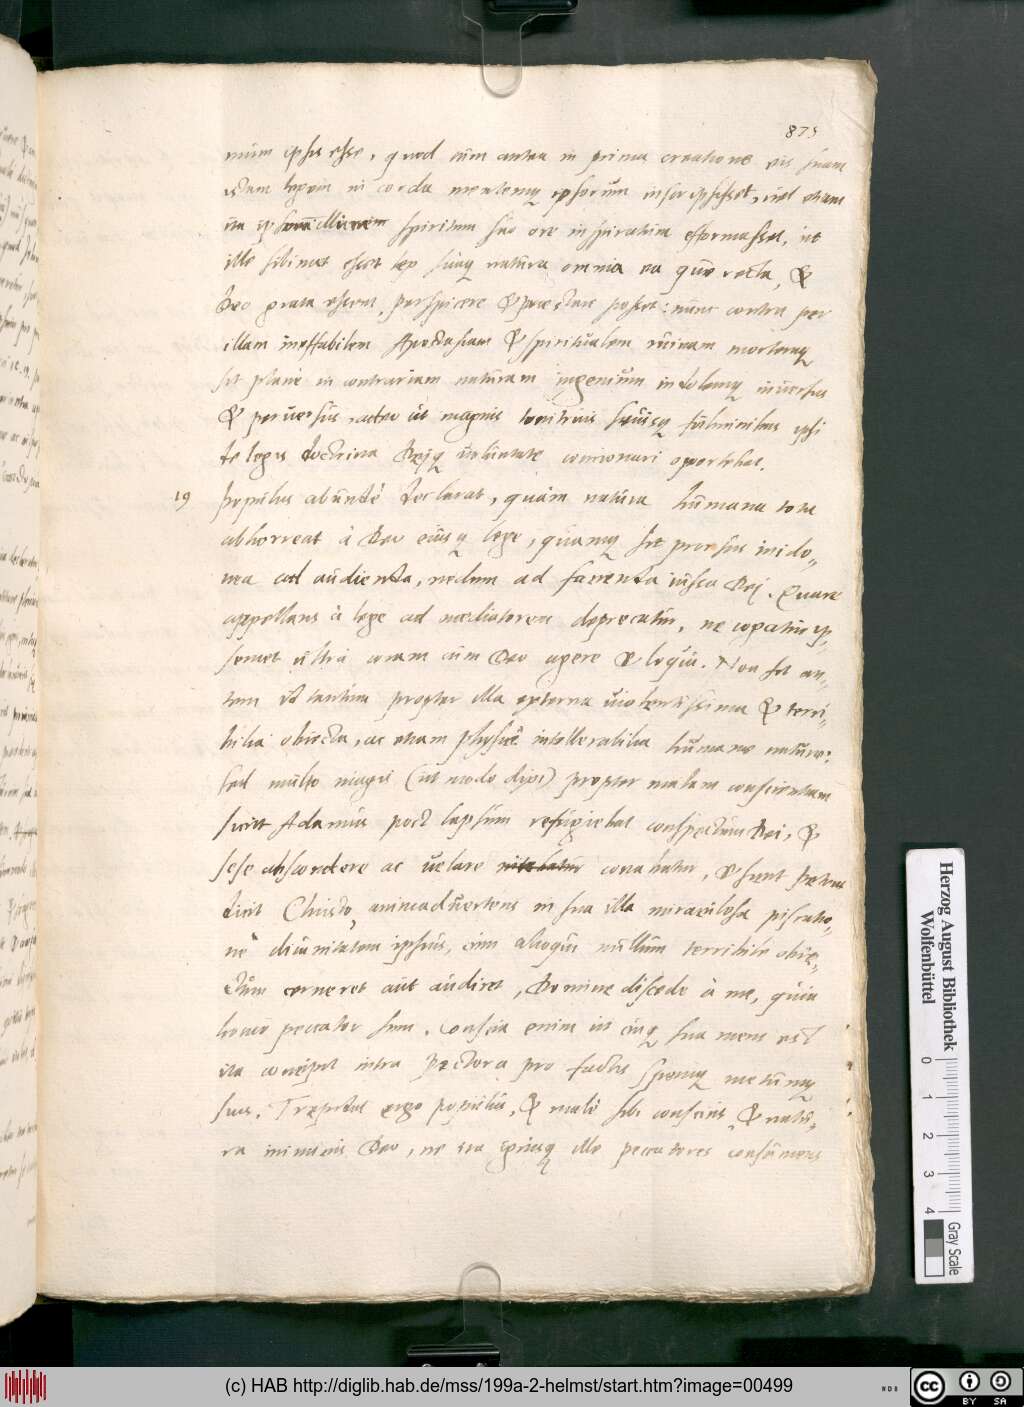 873
mum ipsis esse, quod cum antea in prima creatione vis suam
istam legem in corda mentemq ipsorum inscripsisset, vel etiam
ita spiritum suo ore inspiratum efformasset, ut
ille sibimet esset lex suaq natura omnia ea quae recta, &
Deo grata essent, perspicere & praestare posset: nunc contra per
illam ineffabilem Apostasiam & spiritualem ruinam mortemq
sit plane in contrariam naturam ingenium indolemq inversus
& perversus, adeo ut magnis tonitruis suisq fulminibus ipsi
de legis doctrina Deiq voluntate concionari oportebat.
19 Populus abunde declarat, quam natura humana tota
abhorreat à Deo eiusq lege, quamq sit prorsus inido-
nea ad audienda, nedum ad facienda iussa Dei. Quare
appellans à lege ad mediatorem deprecatur, ne cogatur ip-
semet ultra coram cum Deo agere & loqui. Non fit au-
tem id tantum propter illa externa violentissima & terri-
bilia obiecta, ac etiam physicè intollerabilia humanae naturae:
sed multo magis (ut modo dixi) propter malam conscientiam
sicut Adamus post lapsum refugiebat conspectum Dei, &
sese abscondere ac velare nitebatur conabatur, & sicut Petrus
dicit Christo, animadvertens in sua illa miraculosa piscatio-
ne divinitatem ipsius, cum alioqui nullum terribile obie-
ctum cerneret aut audiret, Domine discede à me, quia
homo peccator sum. Conscia enim ut cuiq sua mens est
ita concipit intra pectora pro factis spemq metumq
suo. Trepidat ergo populus, & malè sibi conscius, & natu-
ra inimicus Deo, ne ira ille peccatores consumens
Herzog August Bibliothek
Wolfenbüttel
0 1 2 3 4
Gray Scale
(c) HAB http://diglib.hab.de/mss/199a-2-helmst/start.htm?image=00499
cc BY SA